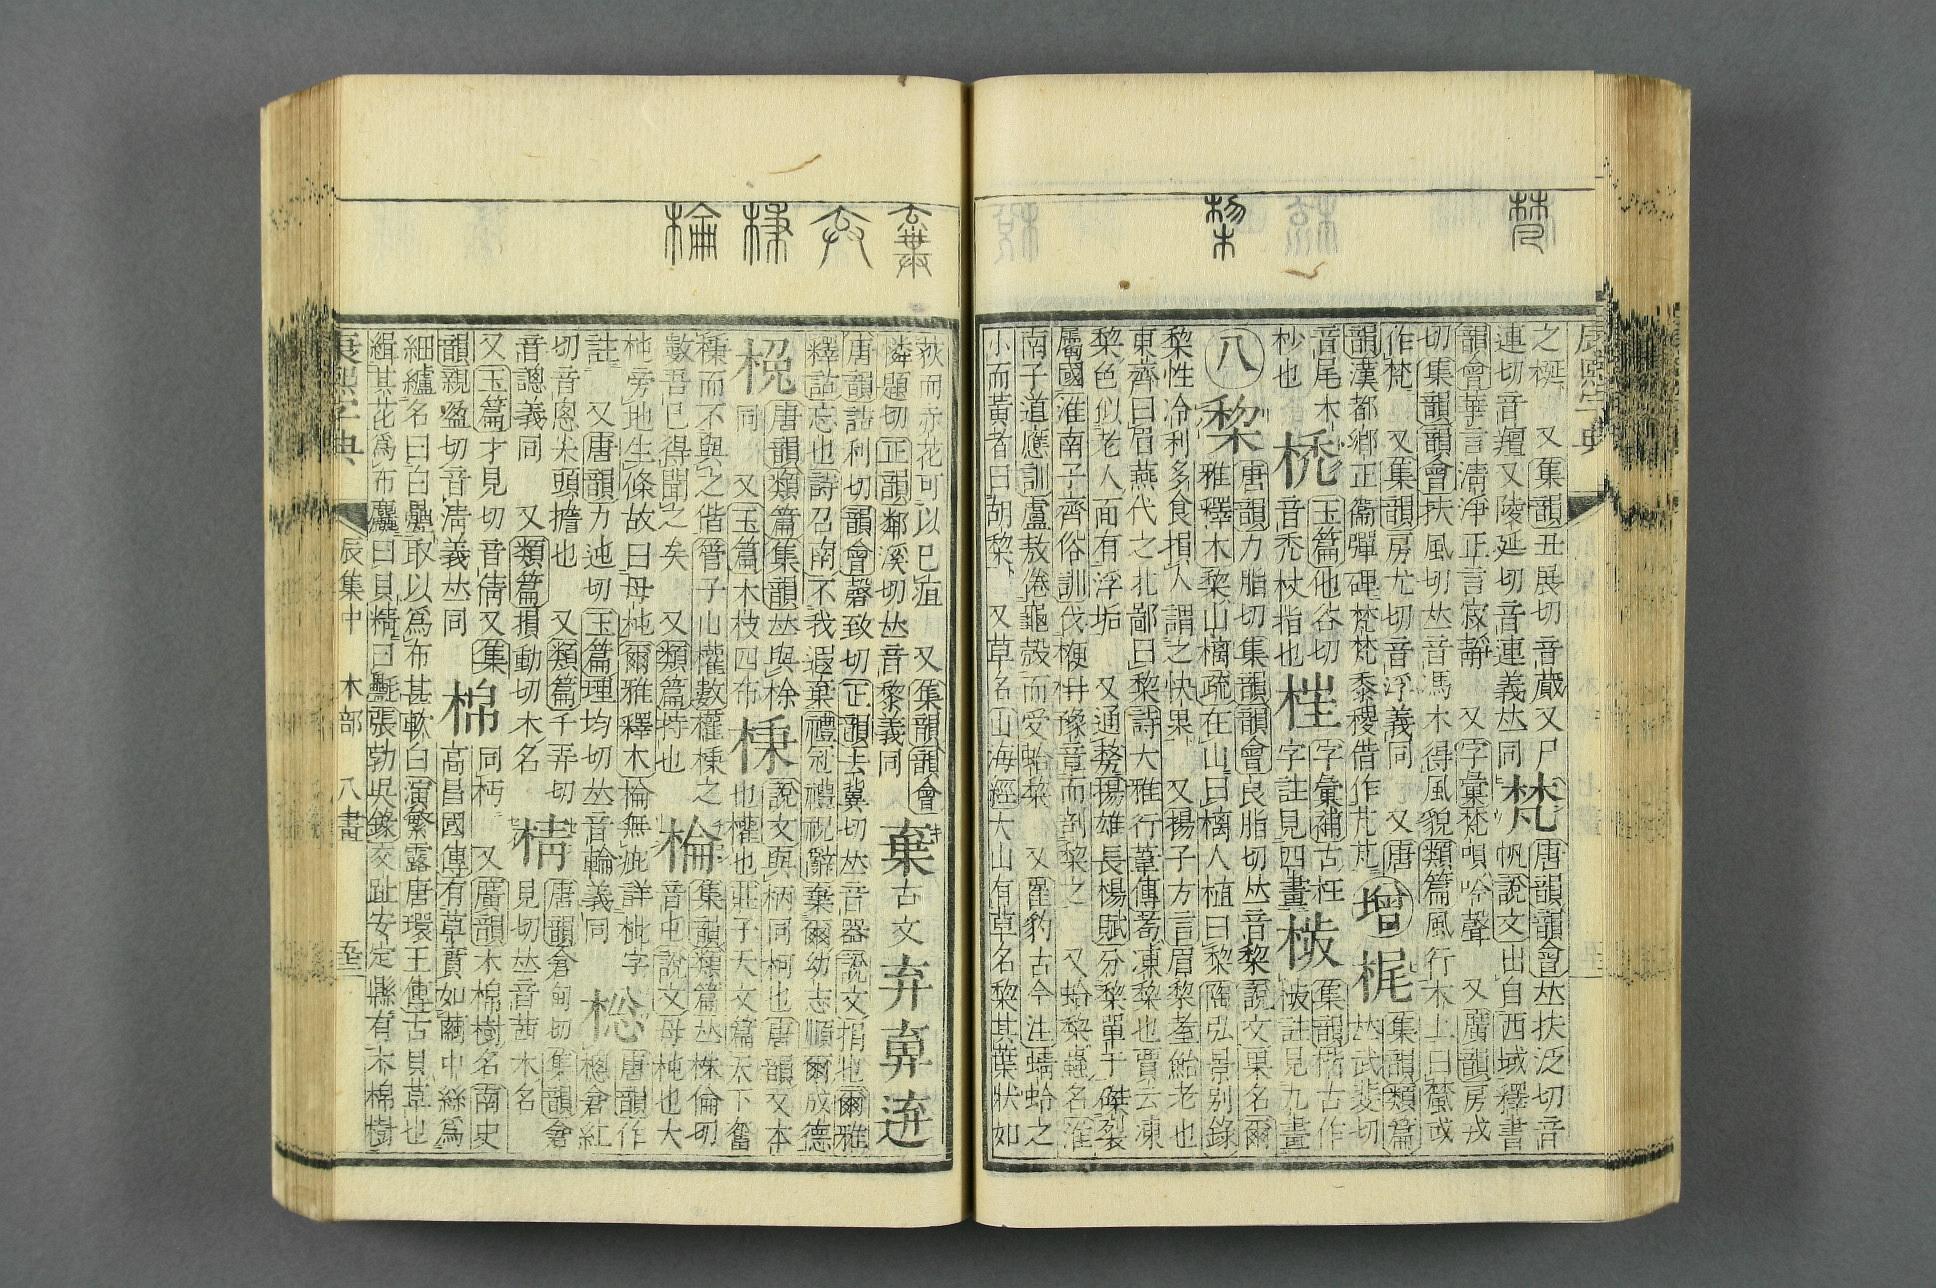 康熙字典
之梴 又集韻丑展切音蕆又尸
連切音羶又陵延切音連義𠀤同
梵
唐韻韻會𠀤扶泛切音
帆說文出自西域釋書
韻會華言清淨正言寂靜 又字彙梵唄吟聲 又廣韻房戎
切集韻韻會扶風切𠀤音馮木得風貌類篇風行木上曰梵或
作梵 又集韻房尤切音浮義同 又唐
韻漢都鄉正衞彈碑梵梵黍稷借作芃芃
增
梶
集韻類篇
𠀤武斐切
音尾木
杪也
㮔
玉篇他谷切
音禿杖指也
字彙補古枉
字註見四畫
集韻𣐺古作
註見九畫
八
棃
唐韻力脂切集韻韻會良脂切𠀤音黎說文果名爾
雅釋木棃山樆疏在山曰樆人植曰棃陶弘景别錄
棃性冷利多食損人謂之快果 又揚子方言眉棃耊鮐老也
東齊曰眉燕代之北鄙曰棃詩大雅行葦傳耈凍棃也賈云凍
棃色似老人面有浮垢 又通剺揚雄長楊賦分棃單于磔裂
屬國淮南子齊俗訓伐楩枏豫章而剖棃之 又蛤棃蟲名淮
南子道應訓盧敖倦龜殼而受蛤棃 又崔豹古今注蜻蛉之
小而黃者曰胡棃 又草名山海經大山有草名棃其葉狀如
荻而赤花可以已疽 又集韻韻會
憐題切正韻鄰溪切𠀤音黎義同
棄
古文弃𠔏𨓋
唐韻詰利切韻會磬致切正韻去冀切𠀤音器說文捐也爾雅
釋詁忘也詩召南不我遐棄禮冠禮祝辭棄爾幼志順爾成德
棿
唐韻類篇集韻𠀤與
同 又玉篇木枝四布
㨗
說文與柄同柯也唐韻又本
也權也莊子天文篇天下奮
棅而不與之偕管子山權數權棅之
數吾已得聞之矣 又類篇持也
棆
集韻類篇𠀤株倫切
音屯說文母杶也大
杶旁地生條故曰母杶爾雅釋木棆無疵詳枇字
註 又唐韻力迍切玉篇理均切𠀤音輪義同
棇
唐韻作
楤倉紅
切音悤尖頭擔也 又類篇千弄切
音謥義同 又類篇損動切木名
棈
唐韻倉甸切集韻倉
見切𠀤音茜木名
又玉篇才見切音倩又集
韻親盈切音淸義𠀤同
棉
同枵 又廣韻木棉樹名南史
高昌國傳有草實如繭中絲爲
細纑名曰白疊取以爲布甚軟白演繁露唐環王傳古貝草也
緝其花爲布麤曰貝精曰㲲張勃吳錄交趾安定縣有木棉樹
康熙字典
辰集中 木部 八畫